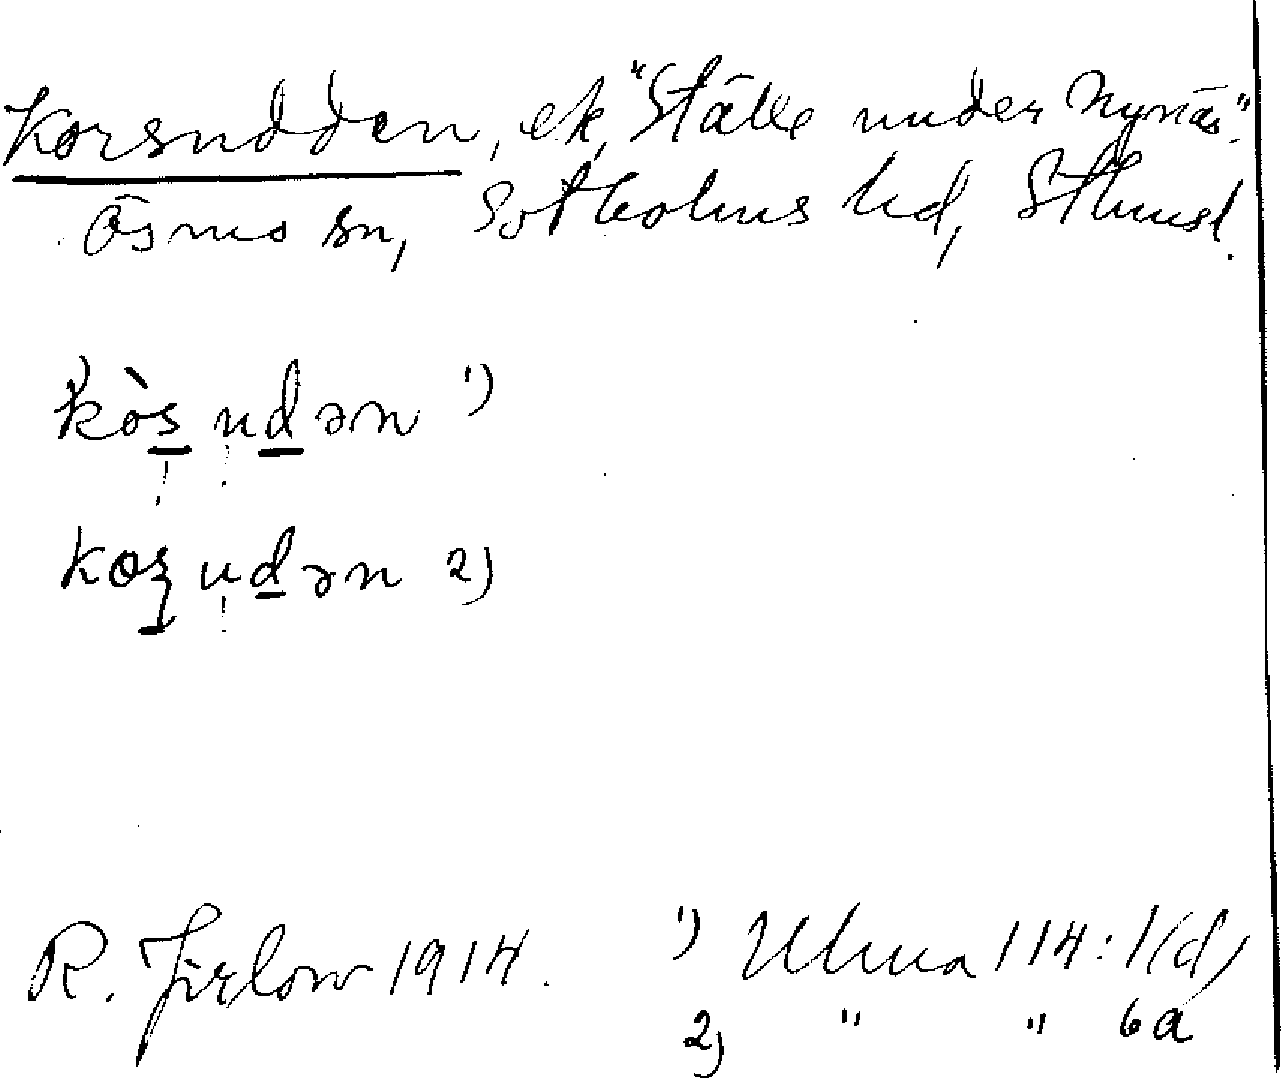 Korsudden, ek, "Ställe under Nynäs".
Ösmo sn, Sotholms hd, Sthmsl.
kòs udən 1)
kos udən 2)
R. Jirlow 1914. 1) Ulma 114:1(d)
2) " " 6a